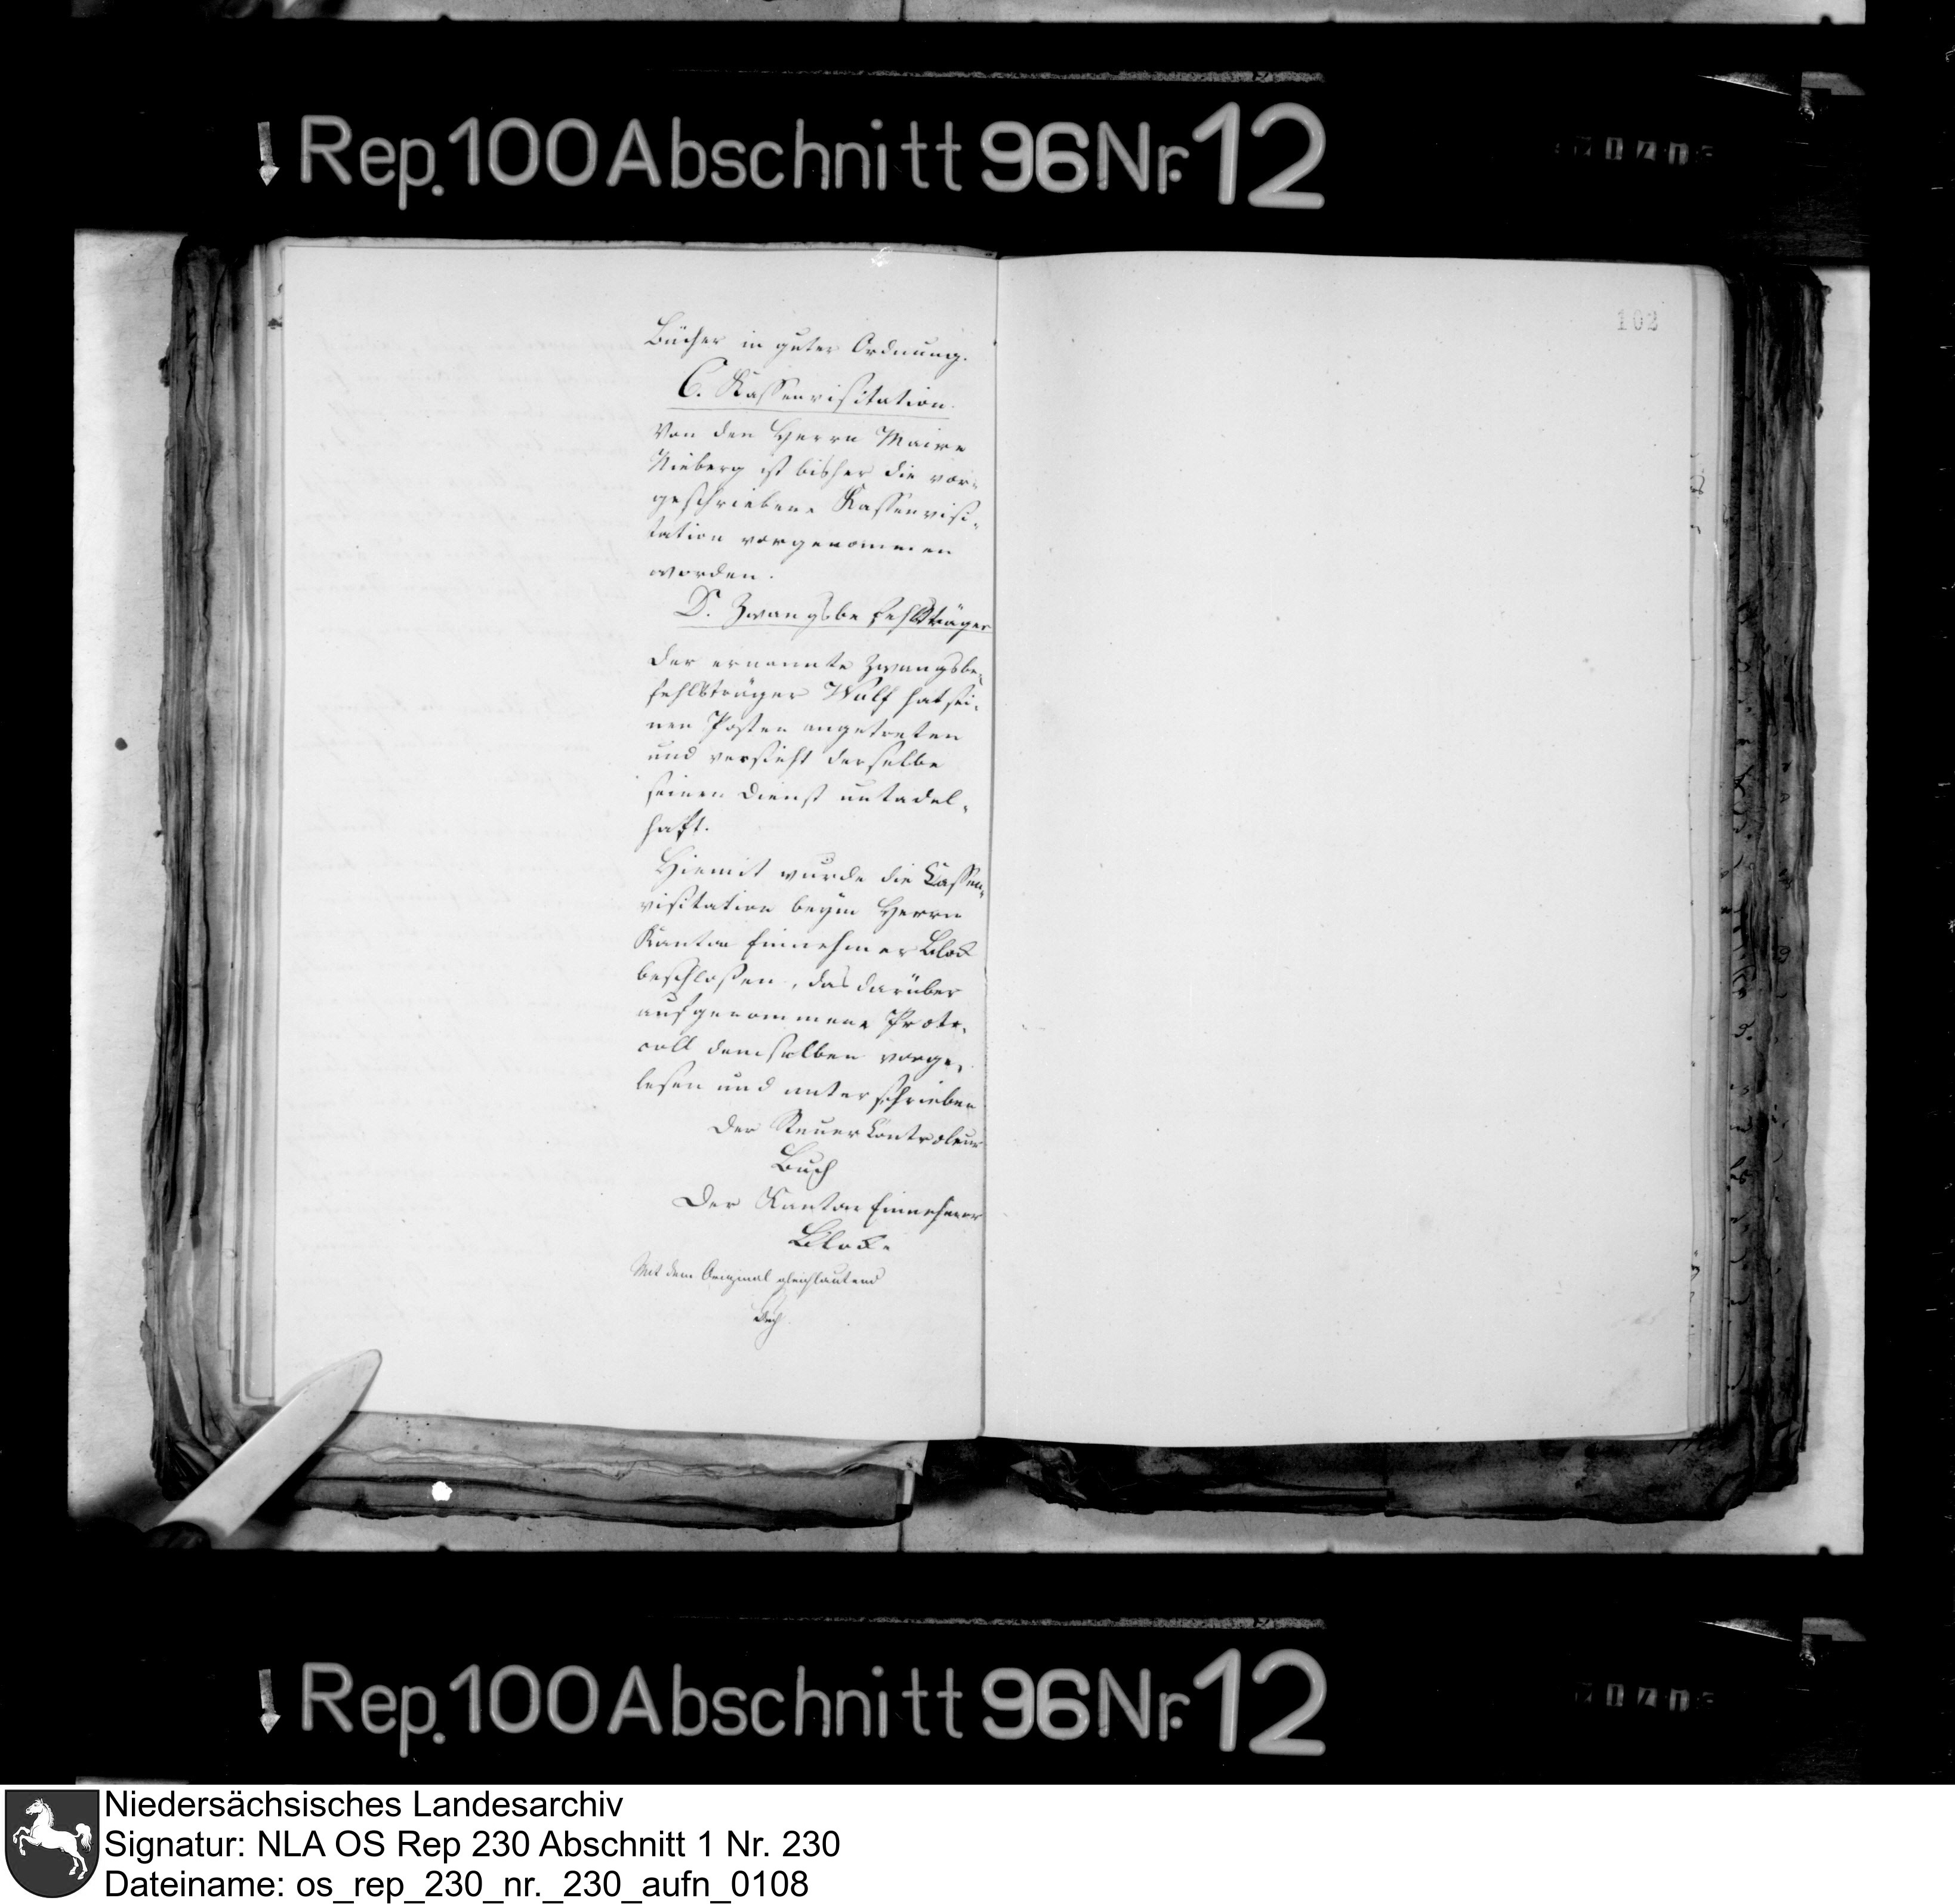 Rep. 100 Abschnitt 96 Nr. 12
102
Bücher in guter Ordnung.
C. Kassenvisitation.
Von den Herrn Maire
Nieberg ist bisher die vor-
geschriebene Kassenvisi-
tation vorgenommen
worden.
D. Zwangsbefehlsträger
Der ernannte Zwangsbe-
fehlsträger Wulf hat sei-
nen Posten angetreten
und versieht derselbe
seinen Dienst untadel-
haft.
Hiemit wurde die Cassen-
visitation beym Herrn
Kanton Einnehmer Block
beschlossen, das darüber
aufgenommene Proto-
coll demselben vorge-
lesen und unterschrieben
Der Steuer Controleur
Buch
Der Kanton Einnehmer
Block.
Mit dem Original gleichlautend
Rep. 100 Abschnitt 96 Nr. 12
Niedersächsisches Landesarchiv
Signatur: NLA OS Rep 230 Abschnitt 1 Nr. 230
Dateiname: os_rep_230_nr._230_aufn_0108